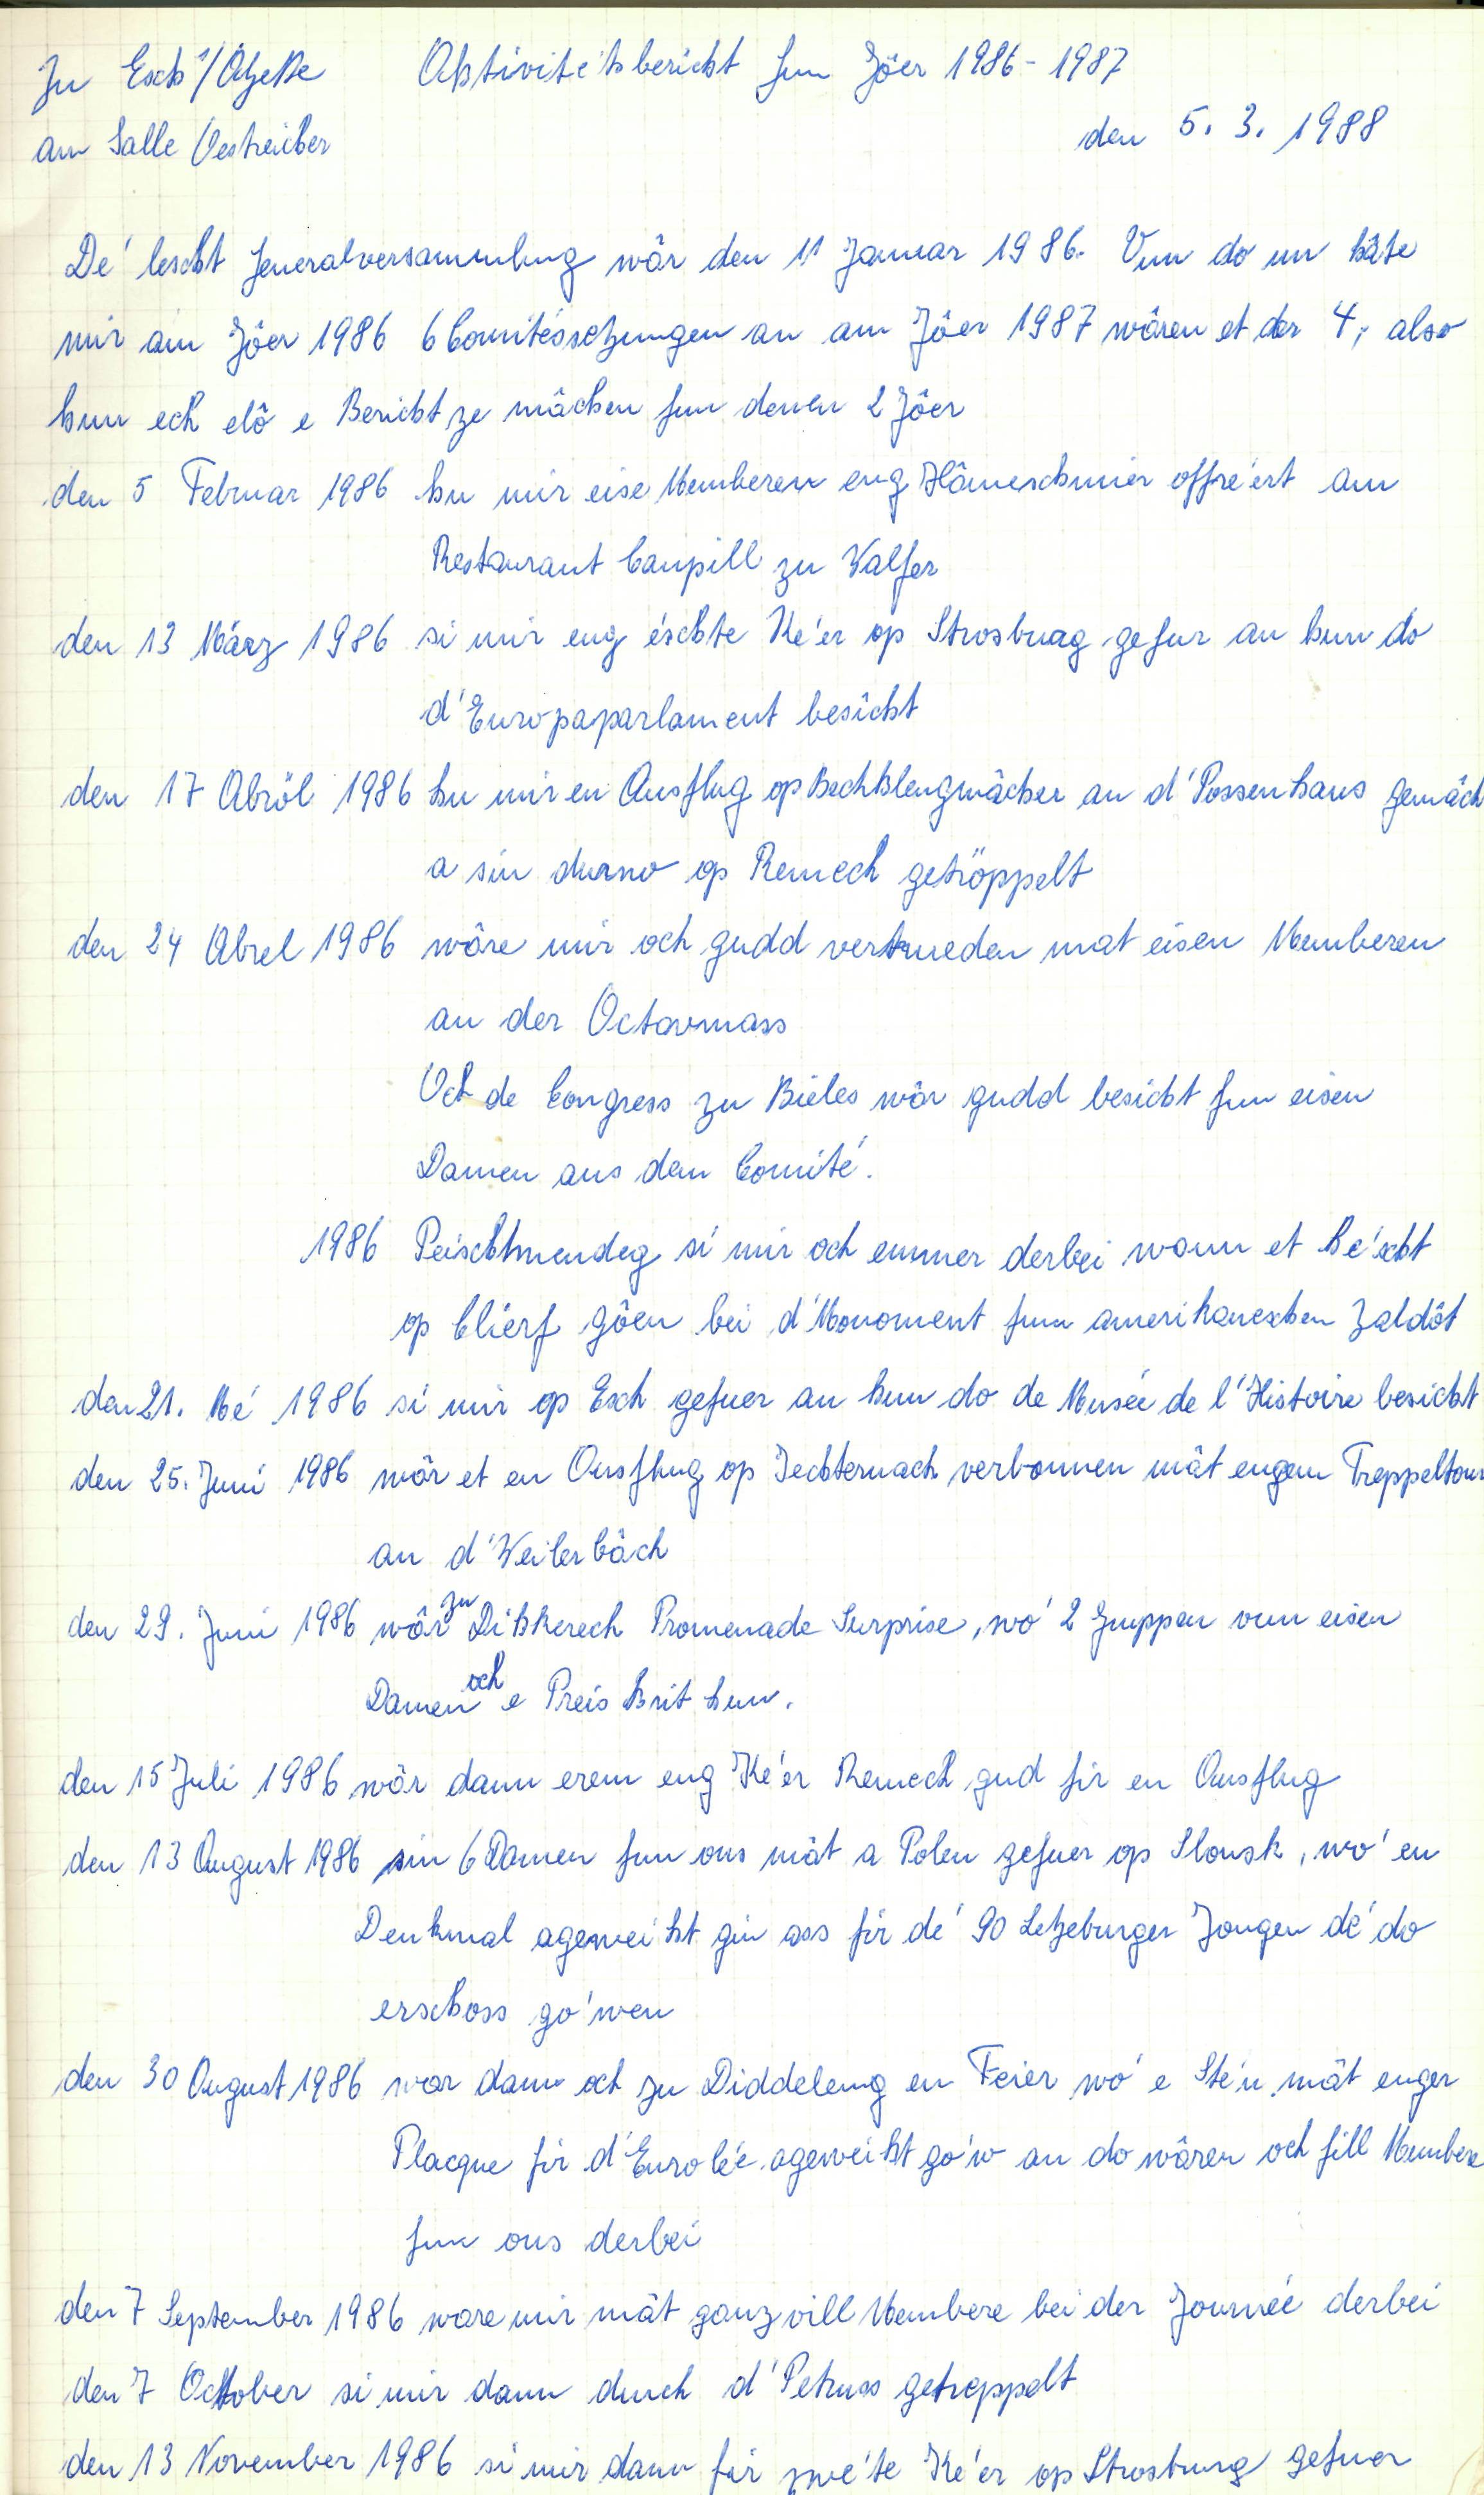 Zu Esch s/Alzette Aktivitéitsbericht fun Jôer 1986-1987
am Salle Oestreicher den 5. 3. 1988
Dé lescht Generalversammlung wâr den 11 Januar 1986. Vun do un hâte
mir am Jôer 1986 6 Comitéssetzungen an am Jôer 1987 wâren et der 4, also
hun ech elô e Bericht ze mâchen fun denen 2 Jôer
den 5 Februar 1986 hu mir eise Memberen eng Hâmeschmier offréert am
Restaurant Campill zu Walfer
den 13 März 1986 si mir eng éschte Ké'er op Strosburg gefur an hun do
d'Europaparlament besicht
den 17 Abröl 1986 hu mir en Ausflug op Bechklengmâcher an d'Possenhaus gemâch
a sin durno op Remech getröppelt
den 24 Abrel 1986 wâre mir och gudd vertrueden mat eisen Memberen
an der Octavmass
Och de Congress zu Bieles wâr gudd besicht fun eisen
Damen aus dem Comité.
1986 Péischtmendeg si mir och emmer derbei wann et hé'scht
op Clierf gôen bei d'Monoment fum amerikaneschen Zaldôt
den 21. Mé 1986 si mir op Esch gefuer an hun do de Musée de l'Histoire besicht
den 25. Juni 1986 wâr et en Ausflug op Iechternach verbonnen mât engem Treppeltour
an d'Weilerbâch
den 29. Juni 1986 wâr zu Dikkerech Promenade Surprise, wo' 2 Gruppen vun eisen
Damen och e Preis krit hun.
den 15 Juli 1986 wâr dann erem eng Ké'er Remech gud fir en Ausflug
den 13 August 1986 sin 6 Damen fun ons mât a Polen gefuer op Slonsk, wo' en
Denkmal ageweiht gin ass fir dé' 90 Letzeburger Jongen dé' do
erschoss go'wen
den 30 August 1986 war dann och zu Diddeleng en Feier wo' e Sté'n mât enger
Placque fir d'Enrolée ageweiht go'w an do wâren och fill Membere
fun ons derbei
den 7 September 1986 ware mir mât ganz vill Membere bei der Journée derbei
den 7 October si mir dann durch d'Petruss getreppelt
den 13 November 1986 si mir dann fir zwé'te Ké'er op Strosburg gefuer